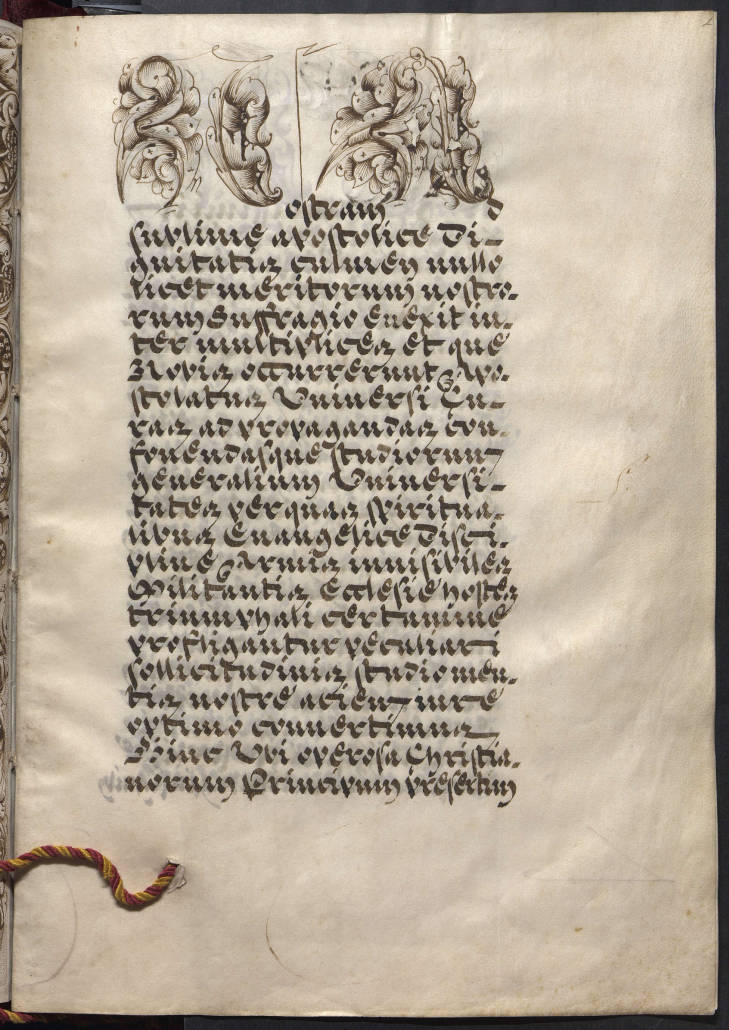 ostram d
sublime apostolice di-
gnitatis culmen nullo
licet meritorum nostro-
rum Suffragio euexit in-
ter multiplices et que
Nobis occurrerunt Apo-
stolatus Vniuersi Cu-
ras ad propagandas con-
fouendasque studiorum
generalium Vniuersi-
tates per quas spiritua-
libus Euangelice disci-
pline Armis inuisibiles
Militantis Ecclesie hostes
triumphali certamine
profligantur peculiari
sollicitudinis studio men-
tis nostre aciem iure
optimo conuertimus
Hinc Vbi operosa Christia-
norum Principum presertim